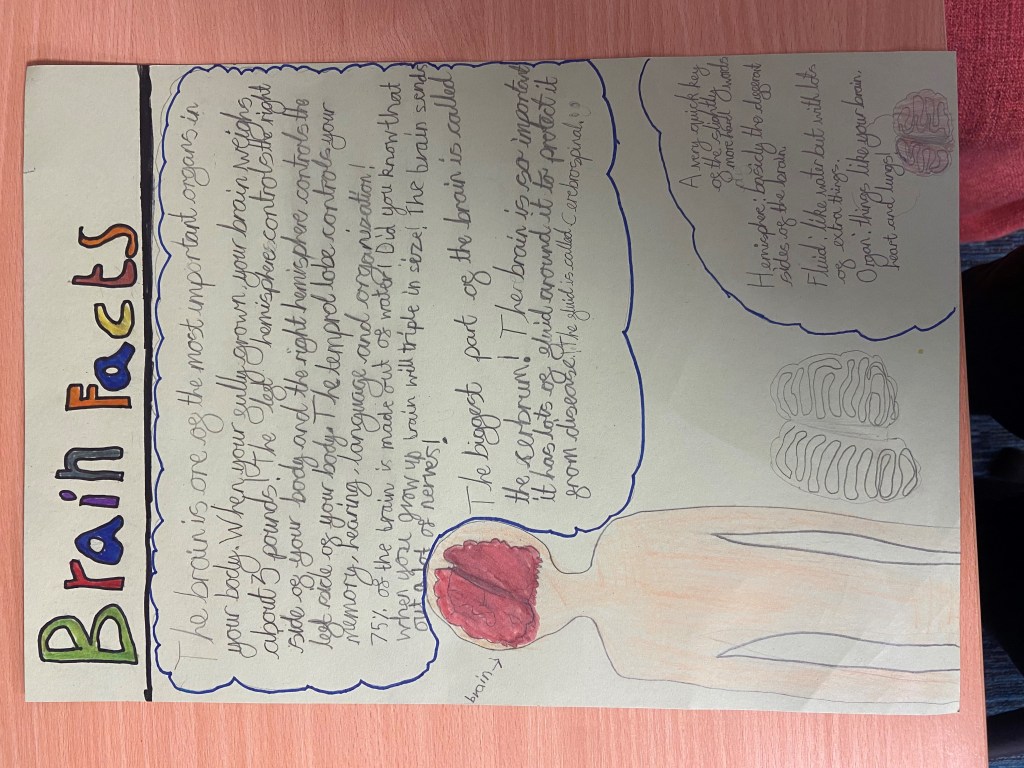 Brain Facts
The brain is one of the most important organs in
your body. When your fully grown your brain weighs
about 3 pounds! The left hemisphere controls the right
side of your body and the right hemisphere controls the
left side of your body. The tempral lobe controls your
memory, hearing, language and organisation!
75% of the brain is made out of water! Did you know that
when you grow up brain will triple in size! The brain sends
out a lot of nerves!
The biggest part of the brain is called
the cerbrum! The brain is so important
it has lots of fluid around it to protect it
from disease! The fluid is called Cerebrospinal!
brain
A very quick key
of the slightly
more tricky words
Hemisphere; basicly the different
sides of the brain.
Fluid: like water but with lots
of extra things.
Organ: things like your brain,
heart and lungs!